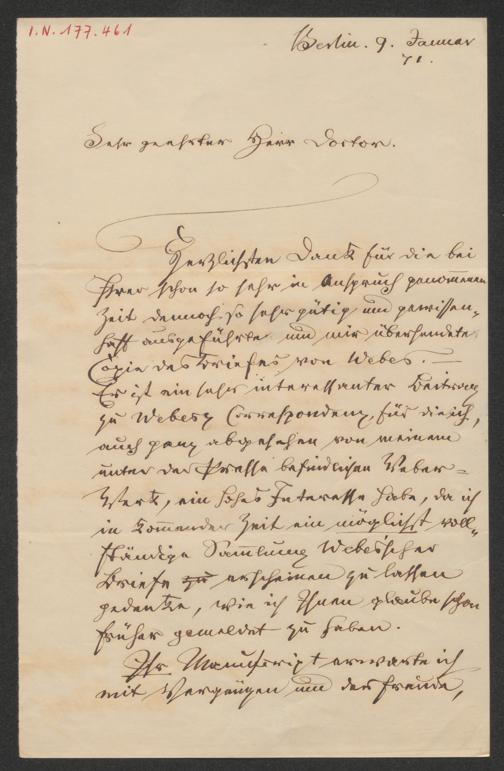 I.N. 177.461
Berlin. 9. Januar
71.
Sehr geehrter Herr Doctor.
Herzlichsten Dank für die bei
Ihrer schon so sehr in Anspruch genommenen
Zeit dennoch so sehr gütig und gewissen-
haft ausgeführte und mir übersendete
Copie des Briefes von Weber. —
Er ist ein sehr interessanter Beitrag
zu Webers Correspondenz, für die ich,
auch ganz abgesehen von meinem
unter der Presse befindlichen Weber-
Werk, ein hohes Interesse habe, da ich
in kommender Zeit ein möglichst voll-
ständige Sammlung Weber'scher
Briefe zu erscheinen zu lassen
gedenke, wie ich Ihnen glaube schon
früher gemeldet zu haben.
Ihr Manuscript erwarte ich
mit Vergnügen und der Freude,